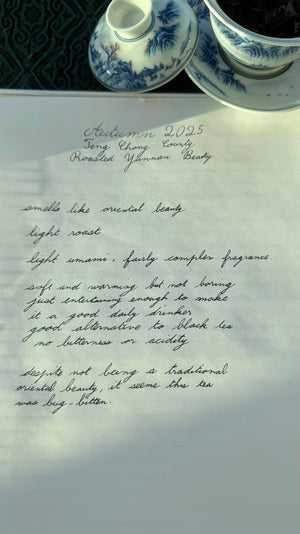 Autumn 2025
Teng Chong County
Roasted Yunnan Beauty
smells like oriental beauty
light roast
light umami, fairly complex fragrance.
soft and warming but not boring
just entertaining enough to make
it a good daily drinker
good alternative to black tea
no bitterness or acidity
despite not being a traditional
oriental beauty, it seems this tea
was bug-bitten.